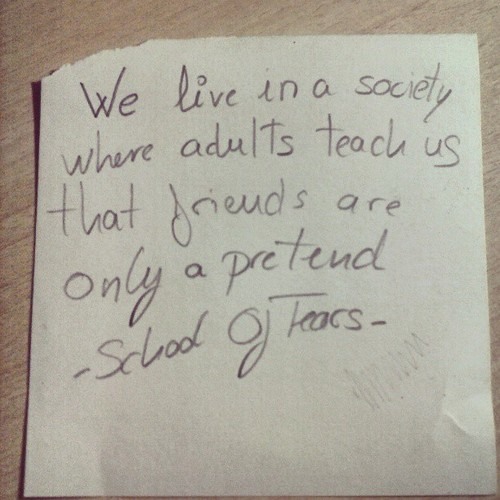 We live in a society
where adults teach us
that friends are
only a pretend
-School Of Tears-